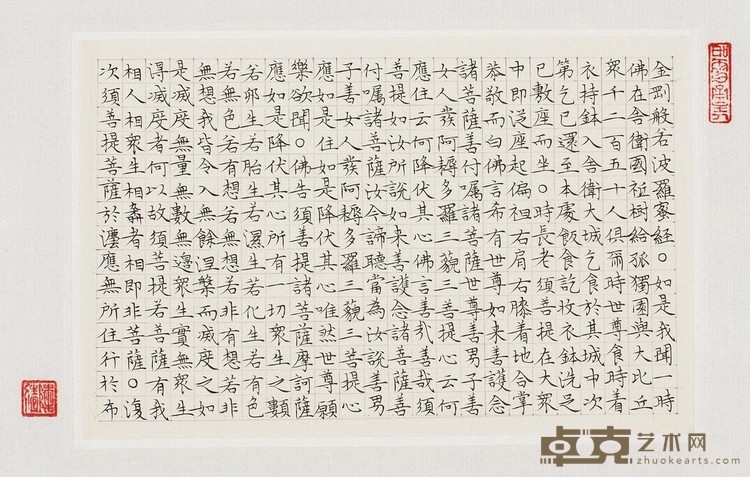 金剛般若波羅蜜經○如是我聞一時
佛在舍衛國祇樹給孤獨園與大比丘
眾千二百五十人俱爾時世尊食時着
衣持鉢入舍衛大城乞食於其城中次
第乞已還至本處飯食訖收衣鉢洗足
已敷座而坐○時長老須菩提在大眾
中即從座起偏袒右肩右膝着地合掌
恭敬而白佛言希有世尊如來善護念
諸菩薩善付囑諸菩薩世尊善男子善
女人發阿耨多羅三藐三菩提心云何
應住云何降伏其心佛言善哉善哉須
菩提如汝所說如來善護念諸菩薩善
付囑諸菩薩汝今諦聽當為汝說善男
子善女人發阿耨多羅三藐三菩提心
應如是住如是降伏其心唯然世尊願
樂欲聞○佛告須菩提諸菩薩摩訶薩
應如是降伏其心所有一切眾生之類
若卵生若胎生若濕生若化生若有色
若無色若有想若無想若非有想若非
無想我皆令入無餘涅槃而滅度之如
是滅度無量無數無邊眾生實無眾生
得滅度者何以故須菩提若菩薩有我
相人相眾生相壽者相即非菩薩○復
次須菩提菩薩於灋應無所住行於布
卓克艺术网
zhuokearts.com